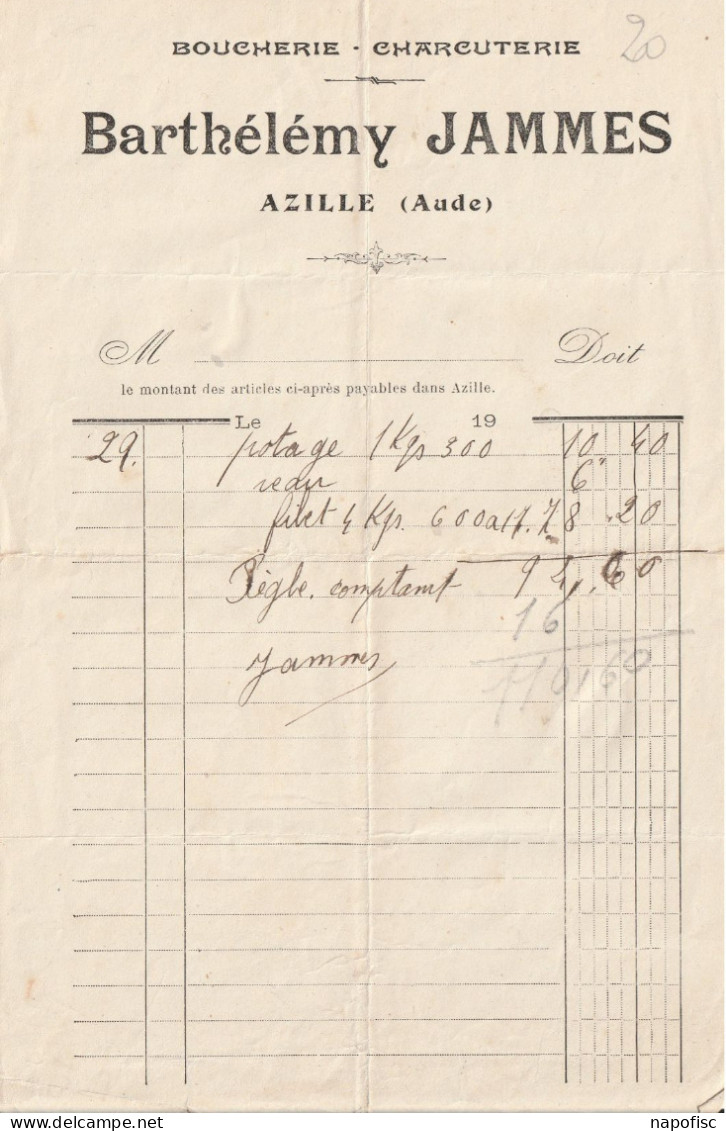 BOUCHERIE - CHARCUTERIE
20
Barthélémy JAMMES
AZILLE (Aude)
M Doit
le montant des articles ci-après payables dans Azille.
Le 19
29. potage 1 Kgs 300 10 40
veau 6
filet 4 Kgs. 600 a 17. 78.20
Règle. comptant 94,60
16
Jammes
110,60
napofisc